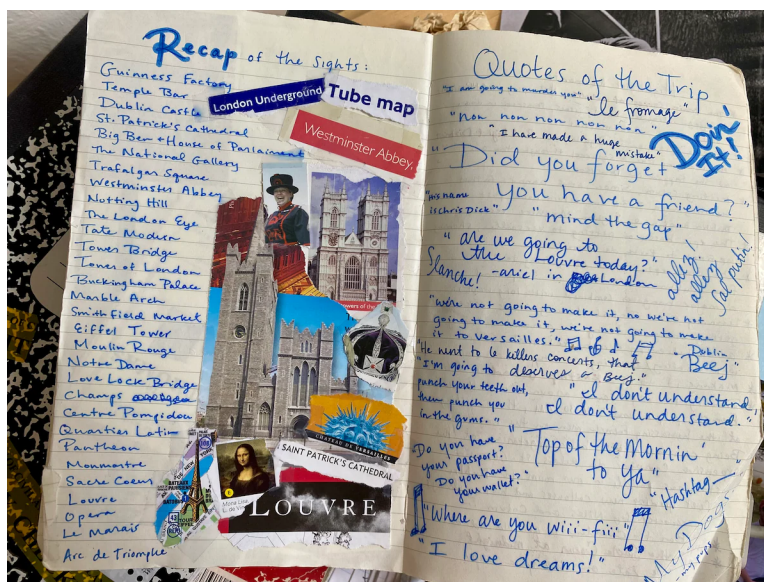 Recap of the Sights:
Guinness Factory
Temple Bar
Dublin Castle
St. Patrick's Cathedral
Big Ben + House of Parliament
The National Gallery
Trafalgar Square
Westminster Abbey
Notting Hill
The London Eye
Tate Modern
Tower Bridge
Tower of London
Buckingham Palace
Marble Arch
Smithfield Market
Eiffel Tower
Moulin Rouge
Notre Dame
Love Lock Bridge
Champs
Centre Pompidou
Quartier Latin
Pantheon
Monmartre
Sacre Coeur
Louvre
Opera
Le Marais
Arc de Triomphe
London Underground
Tube map
Westminster Abbey.
CHATEAU DE VERSAILLES
SAINT PATRICK'S CATHEDRAL
Mona Lisa
LOUVRE
BATEAUX
PARISIENS
42
Quotes of the Trip
"I am going to murder you"
"le fromage"
"non non non non non non"
"I have made a huge
mistake"
Doin'
It!
"Did you forget
you have a friend?"
"His name
is Chris Dick"
"mind the gap"
"are we going to
the Louvre today?"
-ariel in London
Slanche!
allez!
allez!
"we're not going to make it, no we're not
going to make it, we're not going to make
it to versailles."
"Dublin
Beej"
"He went to 6 killers concerts, that
deserves a Beej."
"I'm going to
punch your teeth out,
then punch you
in the gums."
"I don't understand,
I don't understand."
Do you have
your passport?
Do you have
your wallet?
"Top of the Mornin'
to Ya"
"Hashtag—"
"Where are you wiii-fiii"
"I love dreams!"
My Dog